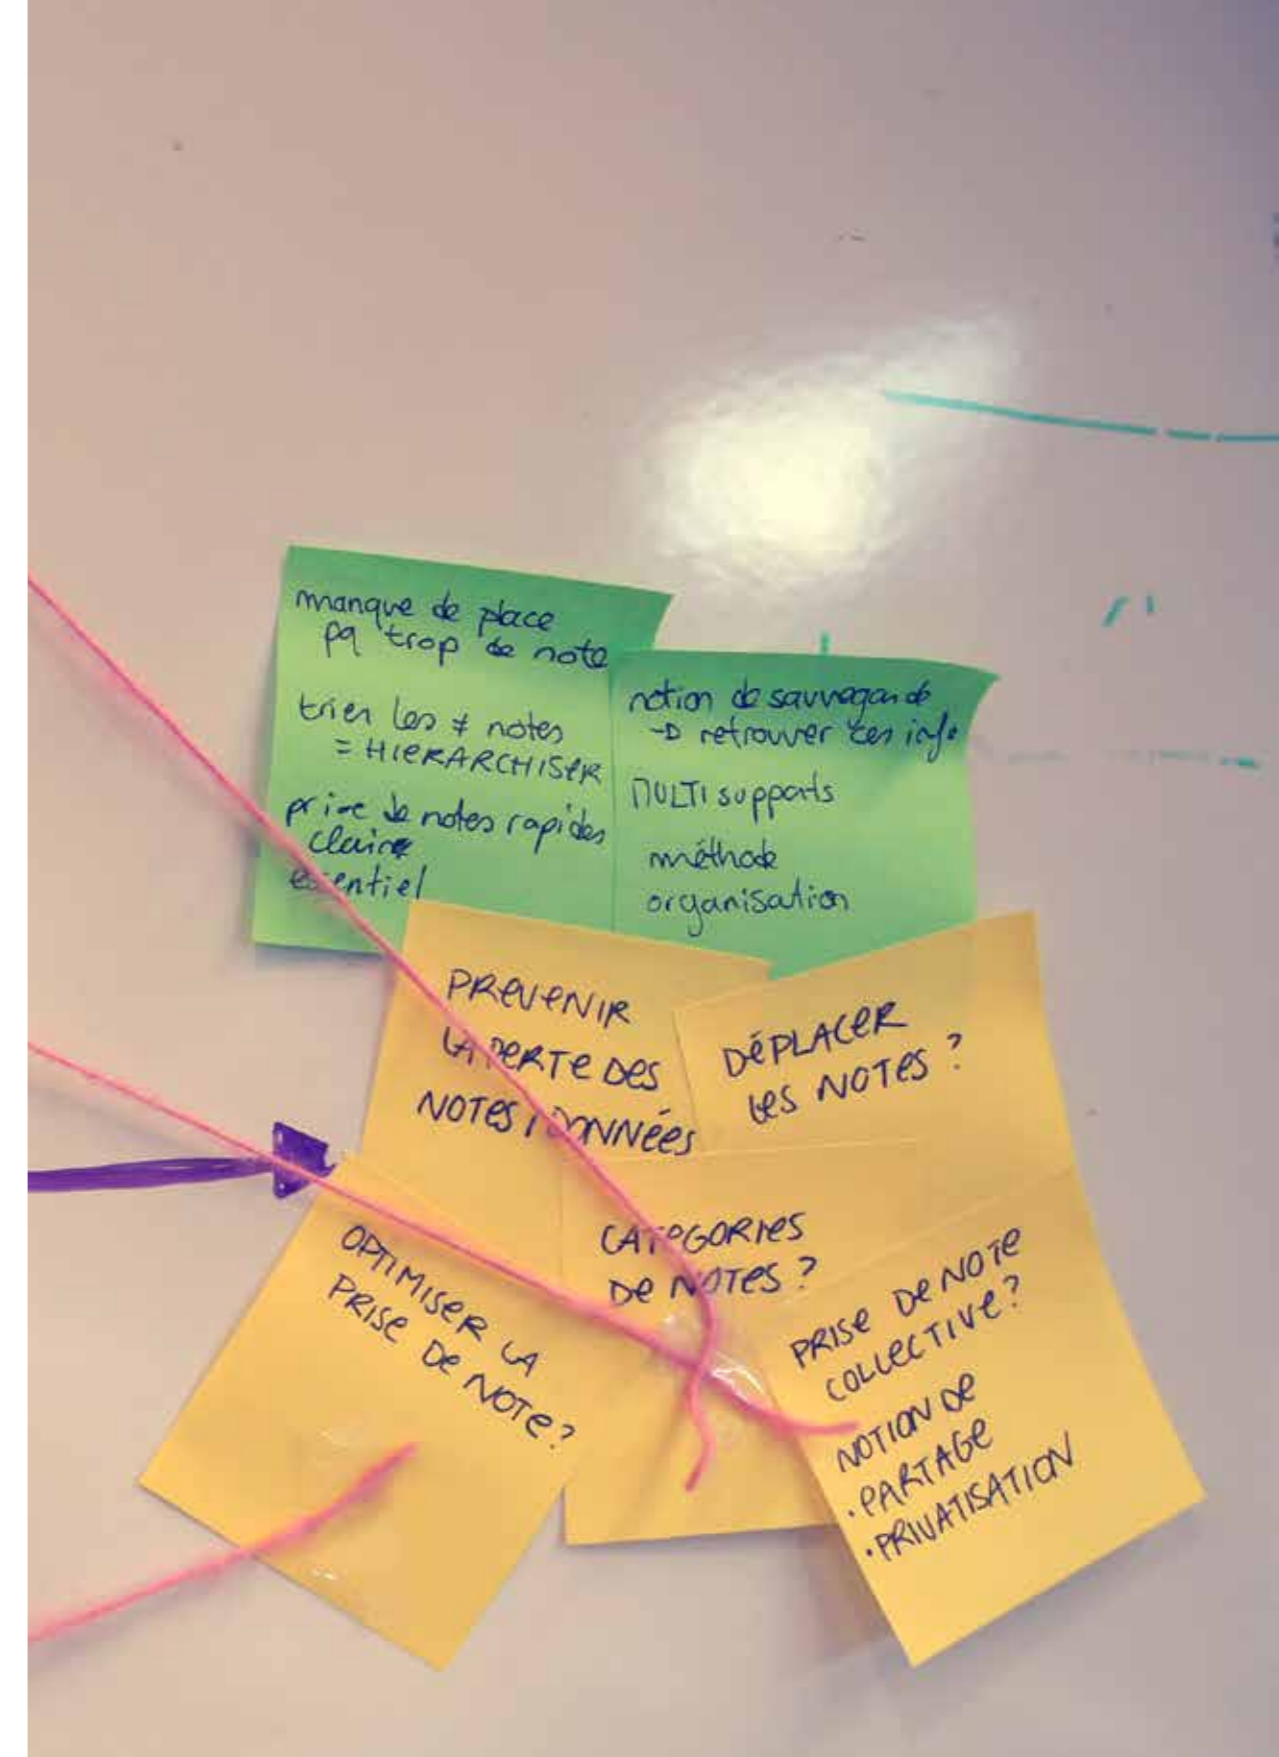 manque de place
pq trop de note
trier les ≠ notes
= HIERARCHISER
prise de notes rapides
claire
essentiel
notion de sauvegarde
→ retrouver ces info
MULTI supports
méthode
organisation
PREVENIR
LA PERTE DES
NOTES / DONNÉES
DÉPLACER
LES NOTES ?
OPTIMISER LA
PRISE DE NOTE ?
CATEGORIES
DE NOTES ?
PRISE DE NOTE
COLLECTIVE ?
NOTION DE
. PARTAGE
. PRIVATISATION